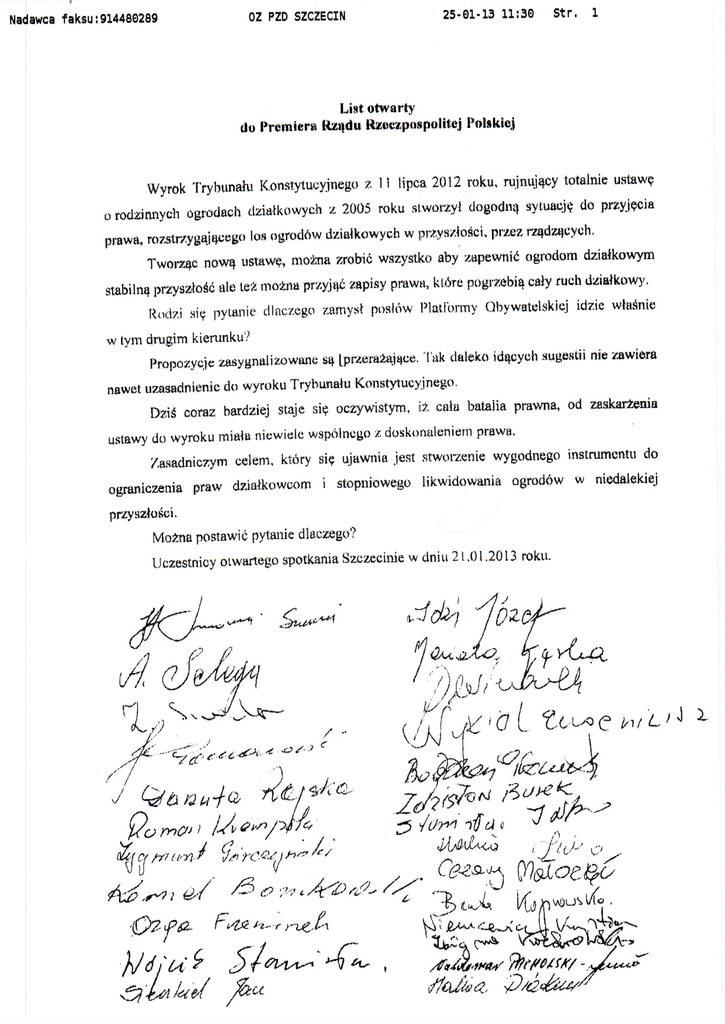 Nadawca faksu:914480289 OZ PZD SZCZECIN 25-01-13 11:30 Str. 1
List otwarty
do Premiera Rządu Rzeczpospolitej Polskiej
Wyrok Trybunału Konstytucyjnego z 11 lipca 2012 roku, rujnujący totalnie ustawę
o rodzinnych ogrodach działkowych z 2005 roku stworzył dogodną sytuację do przyjęcia
prawa, rozstrzygającego los ogrodów działkowych w przyszłości, przez rządzących.
Tworząc nową ustawę, można zrobić wszystko aby zapewnić ogrodom działkowym
stabilną przyszłość ale też można przyjąć zapisy prawa, które pogrzebią cały ruch działkowy.
Rodzi się pytanie dlaczego zamysł posłów Platformy Obywatelskiej idzie właśnie
w tym drugim kierunku?
Propozycje zasygnalizowane są [przerażające. Tak daleko idących sugestii nie zawiera
nawet uzasadnienie do wyroku Trybunału Konstytucyjnego.
Dziś coraz bardziej staje się oczywistym, iż cała batalia prawna, od zaskarżenia
ustawy do wyroku miała niewiele wspólnego z doskonaleniem prawa.
Zasadniczym celem, który się ujawnia jest stworzenie wygodnego instrumentu do
ograniczenia praw działkowcom i stopniowego likwidowania ogrodów w niedalekiej
przyszłości.
Można postawić pytanie dlaczego?
Uczestnicy otwartego spotkania Szczecinie w dniu 21.01.2013 roku.
Józef
A.
Renata
Danuta Rajska
Bogdan
Roman Krempola
Zdzisław Burek
Zygmunt Górczyński
Kornel
Cezary
Beata
Wojcik Stanisław.
Waldemar
Jan
Halina